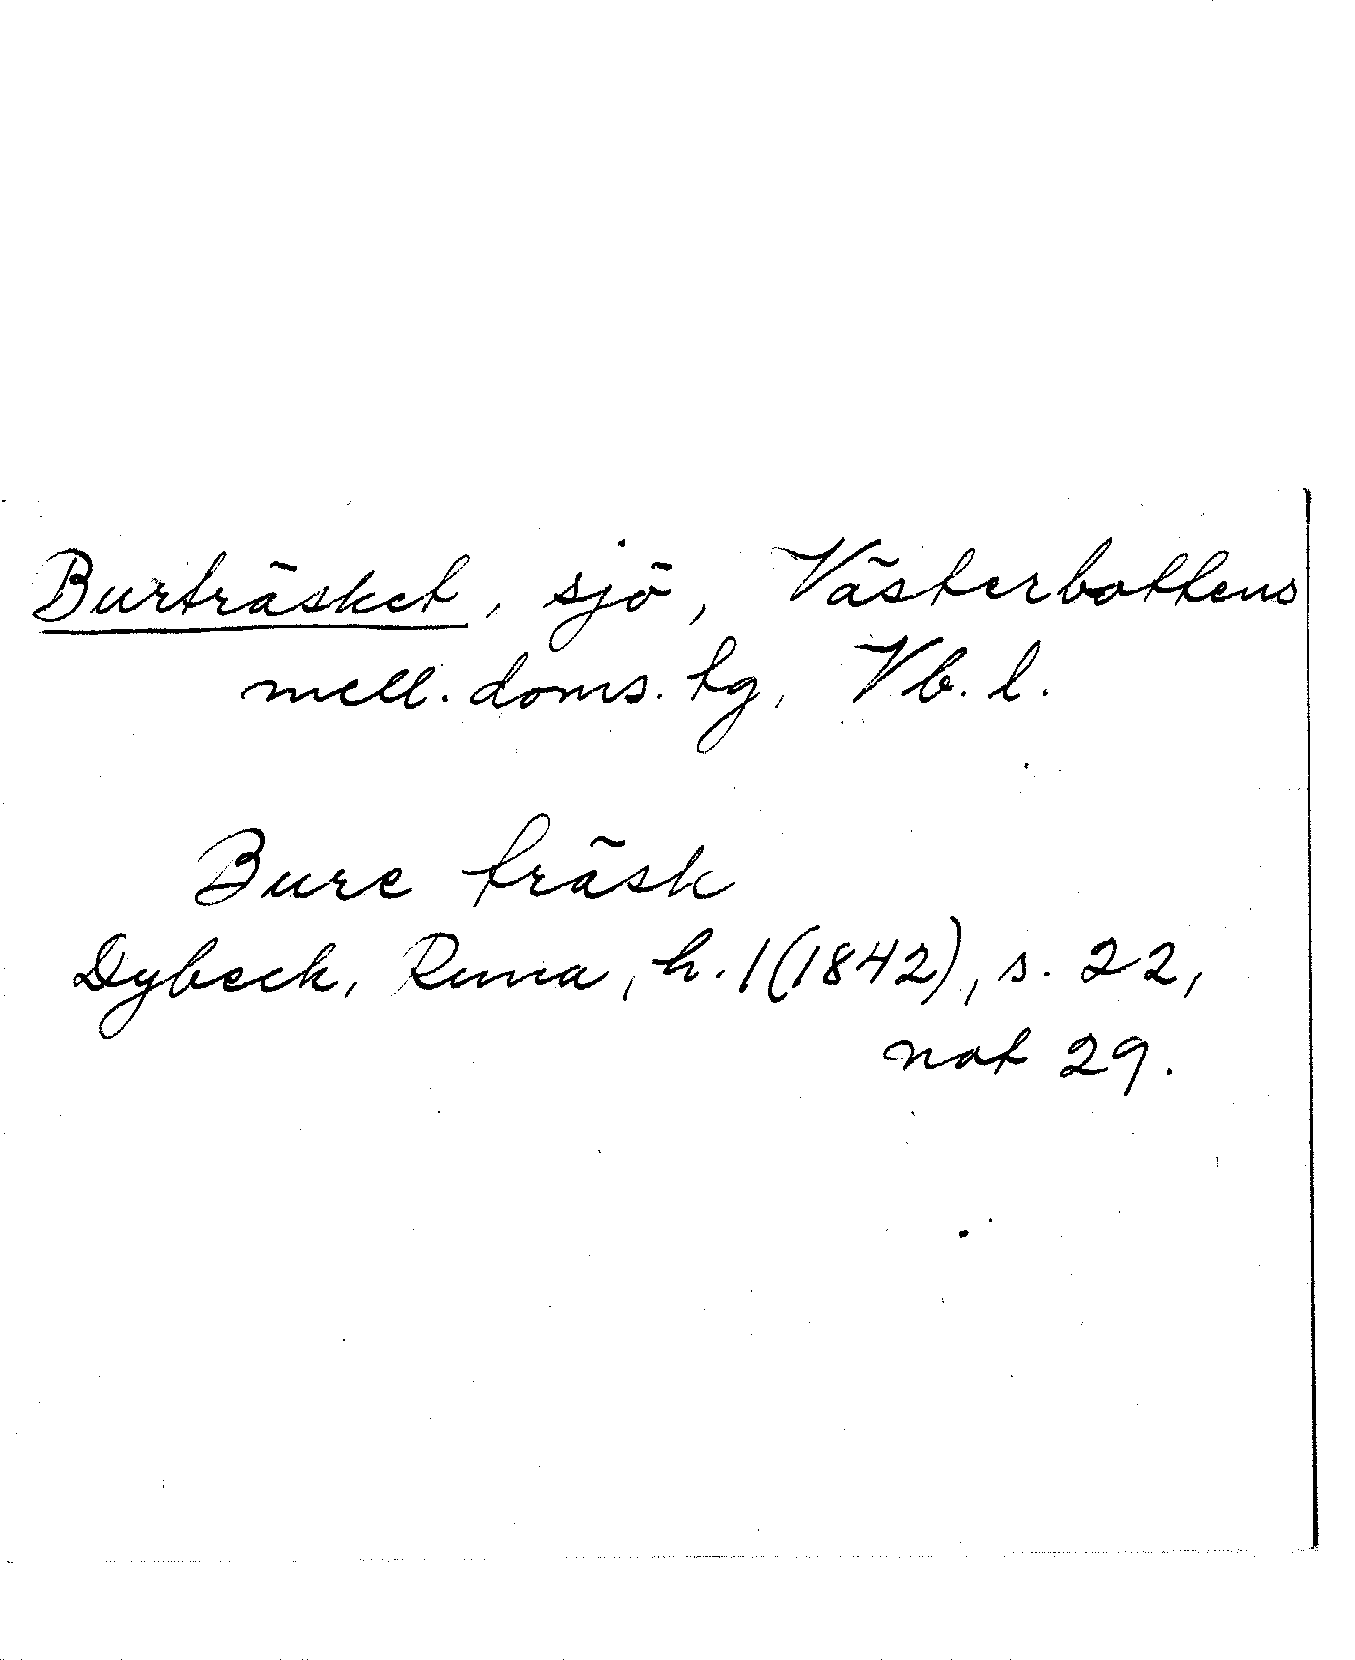 Burträsket, sjö, Västerbottens
mell. doms. tg, Vb. l.
Bure träsk
Dybeck, Runa, h. 1 (1842), s. 22,
not 29.